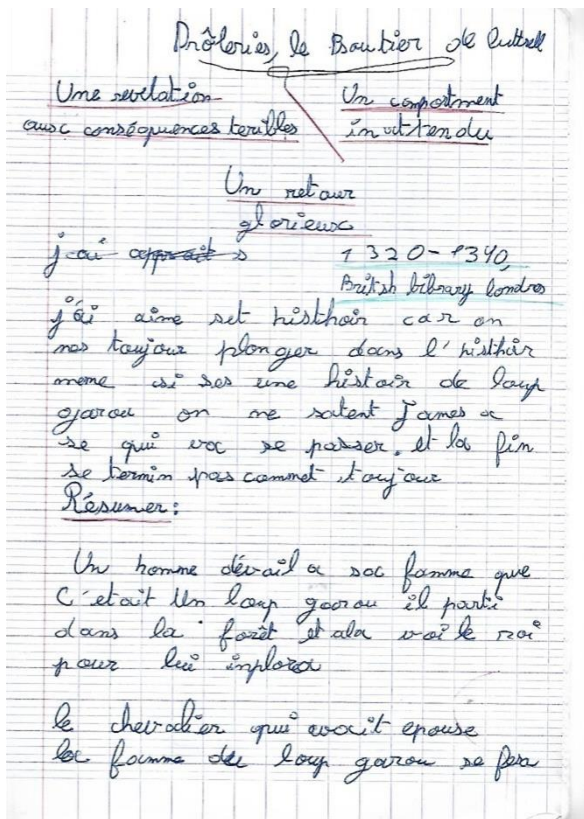 Drôleries, le Psautier de luttrell
Une revelation
aux conséquences teribles
Un comportment
inattendu
Un retour
glorieux
j'ai
1320-1340,
British bibrary londres
j'ai aime set histhoir car on
nos toujour plonger dans l'histhoir
meme si ses une histoir de loup
garou on ne satent James a
se qui va se passer. et la fin
se termin pas commet toujour
Résumer:
Un homme dévoil a sa famme que
C'était Un loup garou il parti
dans la forêt et ala voi le roi
pour lui inplora
le chevalier qui avait epouse
la famme du loup garou se fera